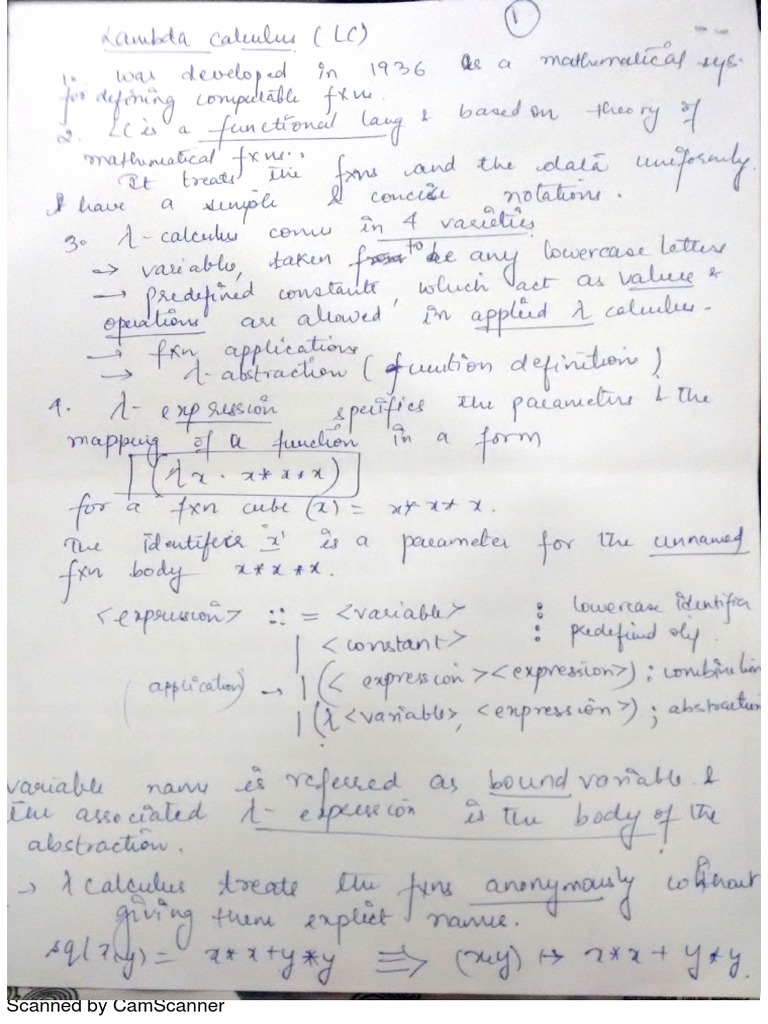 1
Lambda calculus (LC)
1. was developed in 1936 as a mathematical sys-
for defining computable fxns.
2. LC is a functional lang & based on theory of
mathematical fxns.
It treats the fxns and the data uniformly
& have a simple & concise notations.
3. λ-calculus comes in 4 varieties
→ variable, taken to be any lowercase letters
→ predefined constants, which act as values &
operations are allowed in applied λ calculus.
→ fxn applications
→ λ-abstraction (function definition)
4. λ-expression specifies the parameters & the
mapping of a function in a form
(λx. x*x*x)
for a fxn cube (x) = x*x*x.
The identifier 'x' is a parameter for the unnamed
fxn body x*x*x.
<expression> ::= <variable> : lowercase identifie
| <constant> : predefined obj.
(application) → | (<expression><expression>) ; combination
| (λ<variable>, <expression>) ; abstraction
variable name is referred as bound variable &
the associated λ-expression is the body of the
abstraction.
→ λ calculus treate the fxns anonymously without
giving them explict names.
sq(x,y) = x*x+y*y ⇒ (x,y) ↦ x*x + y*y.
Scanned by CamScanner